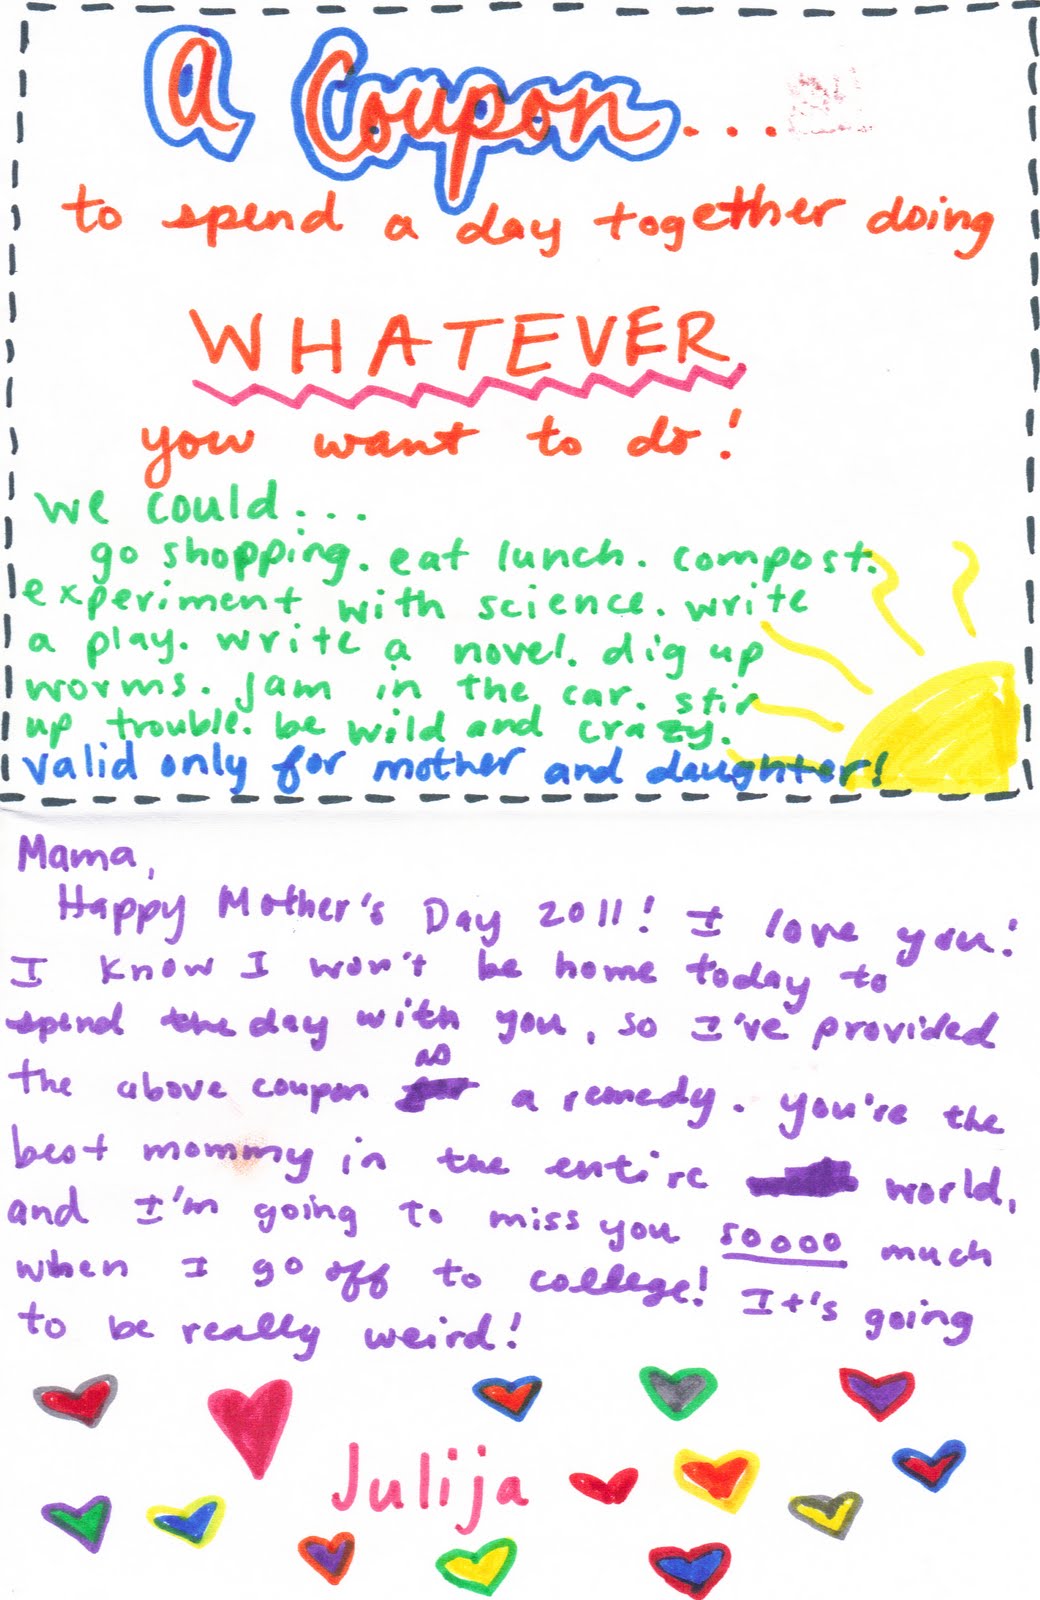 a Coupon...
to spend a day together doing
WHATEVER
you want to do!
we could...
go shopping. eat lunch. compost.
experiment with science. write
a play. write a novel. dig up
worms. jam in the car. stir
up trouble. be wild and crazy.
valid only for mother and daughter!
Mama,
Happy Mother's Day 2011! I love you!
I know I won't be home today to
spend the day with you, so I've provided
the above coupon as a remedy. you're the
best mommy in the entire world,
and I'm going to miss you soooo much
when I go off to college! It's going
to be really weird!
Julija